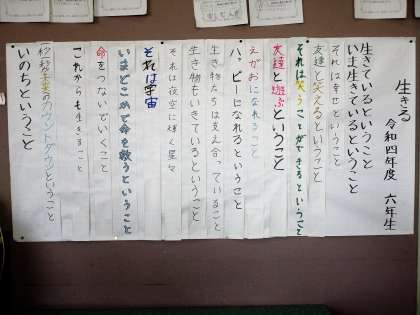 生きる
令和四年度 六年生
生きているということ
いま生きているということ
それは幸せということ
友達と笑えるということ
それは笑うことができるということ
友達と遊ぶということ
えがおになれること
ハッピーになれるということ
生き物たちは支え合っていること
生き物もいきているということ
それは夜空に輝く星々
それは宇宙
いまどこかで命を救うということ
命をつないでいくこと
これからも生きること
秒針は未来のカウントダウンということ
いのちということ